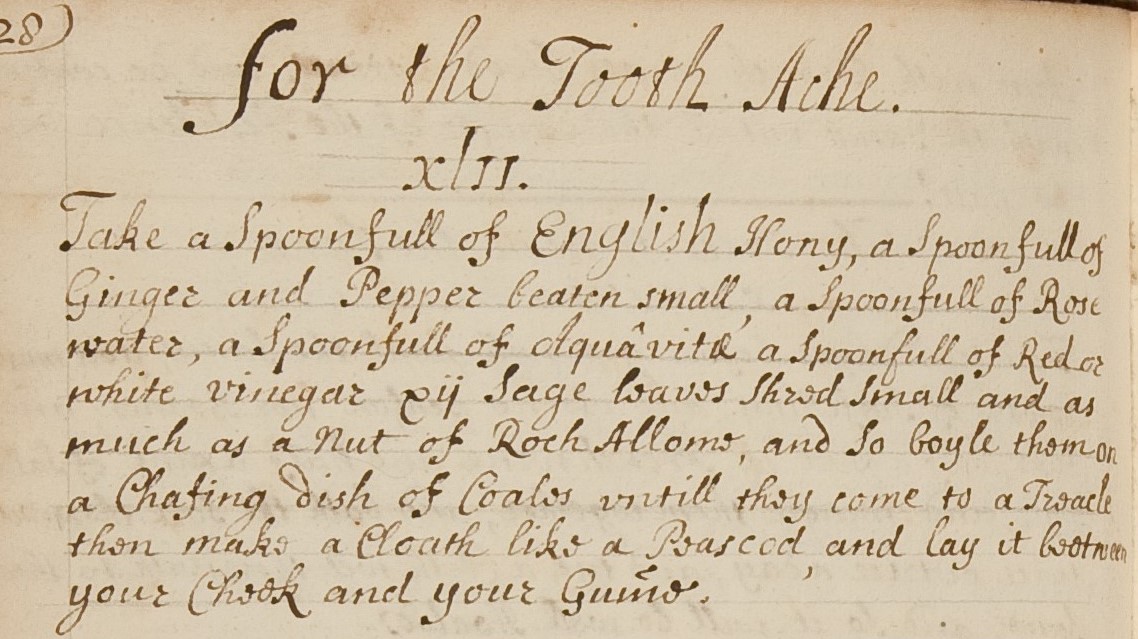 28)
for the Tooth Ache.
xlII.
Take a Spoonfull of English Hony, a Spoonfull of
Ginger and Pepper beaten small, a Spoonfull of Rose
water, a Spoonfull of Aquâvitæ a Spoonfull of Red or
white vinegar xij Sage leaves Shred Small and as
much as a Nut of Roch Allome, and So boyle them on
a Chafing dish of Coales vntill they come to a Treacle
then make a Cloath like a Peascod, and lay it beetween
your Cheek and your Gum̄e.